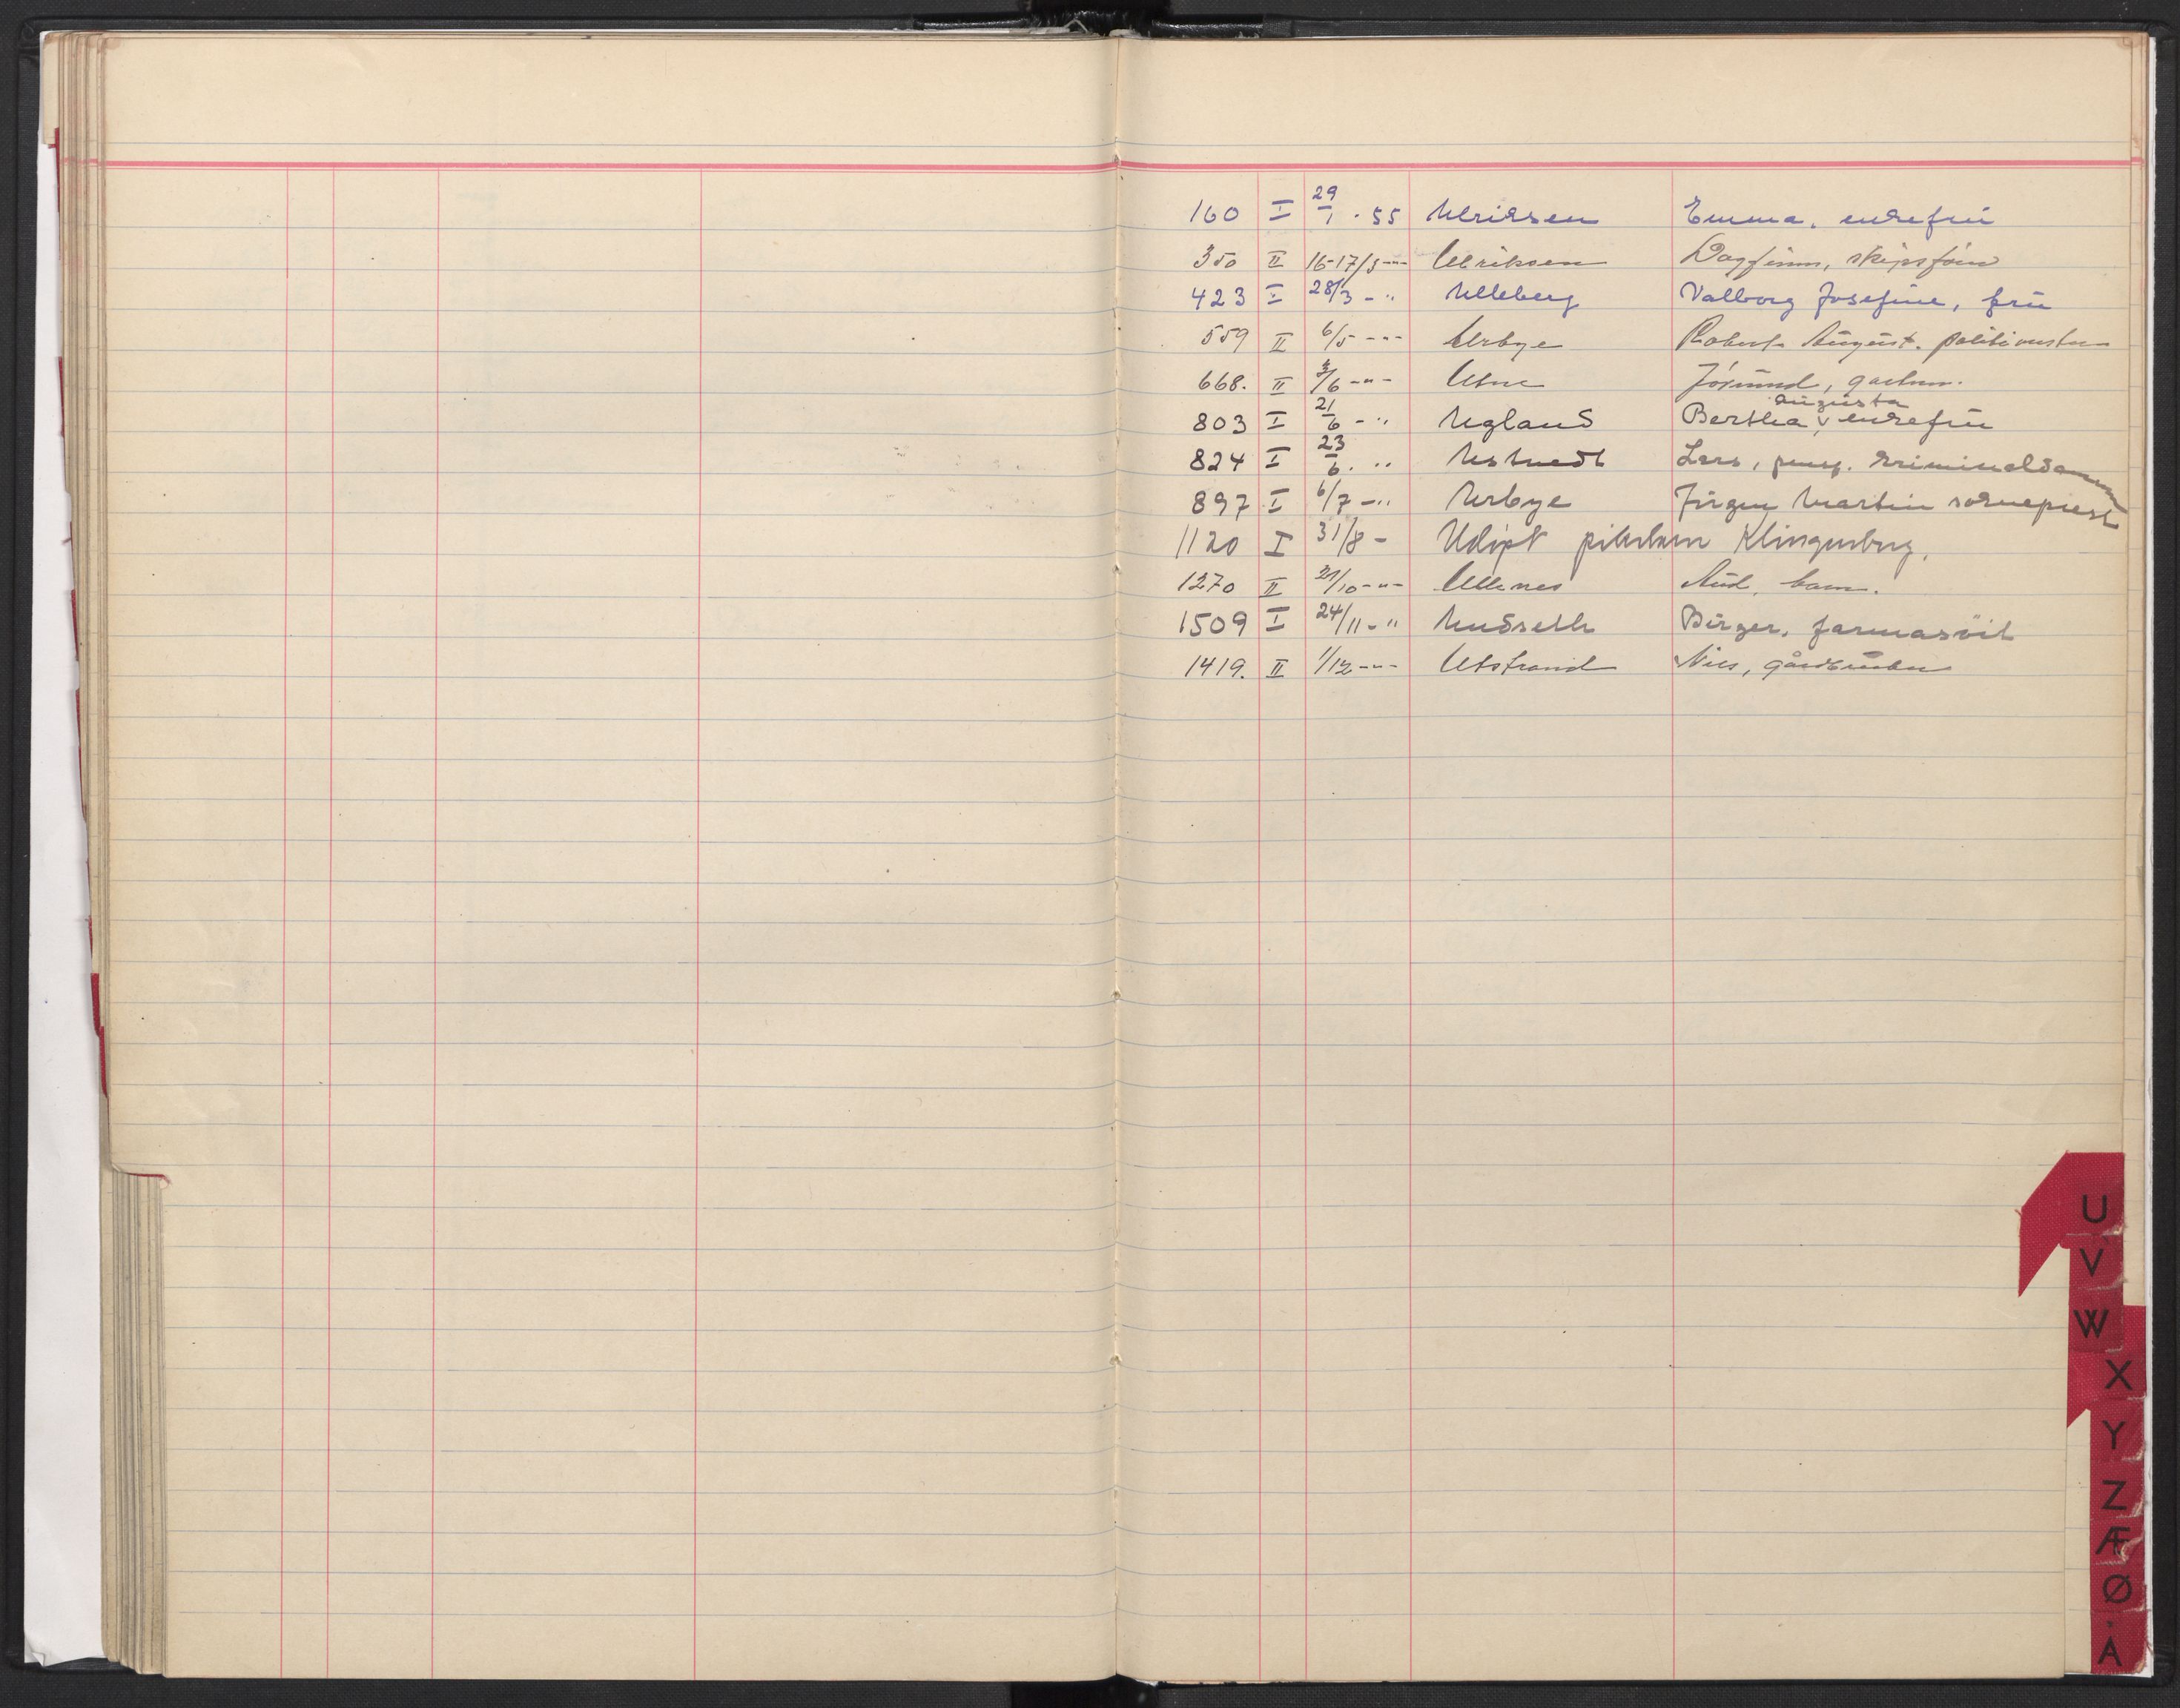 160 I 29/1 · 55 Ulriksen Emma, enkefru
350 II 16-17/3 -"- Ulriksen Dagfinn, skipsfører
423 I 28/3 - " Ulleberg Valborg Josefine, fru
559 II 6/5 -"- Urbye Robert August. politimester
668. II 3/6 -"- Utne Jörund, gartner.
803 I 21/6 - " Ugland Bertha Augusta, enkefru
824 I 23/6. " Ustvedt Lars, pens. kriminaldommer
897 I 6/7 - " Urbye Jürgen Martin sokneprest
1120 I 31/8 - Udöpt pikebarn Klingenberg.
1270 II 21/10 -"- Ullenes Aud, barn.
1509 I 24/11 - " Undseth Birger, farmasöit
1419. II 1/12 -"- Utstrand Nils, gårdbruker
U
V
W
X
Y
Z
Æ
Ø
Å